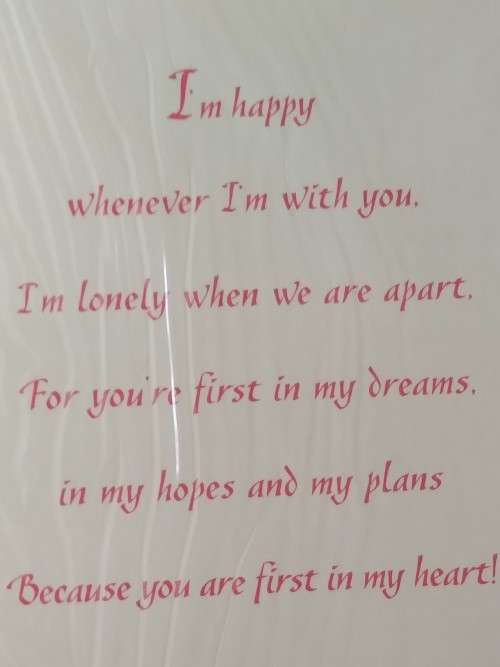 I'm happy
whenever I'm with you,
I'm lonely when we are apart,
For you're first in my dreams,
in my hopes and my plans
Because you are first in my heart!